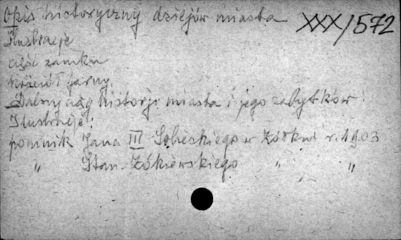 Opis historyczny dziejów miasta XXX/572
Ilustracje
część zamku
kościół farny
Dalszy ciąg historji miasta i jego zabytków.
Ilustracje:
pomnik Jana III Sobieckiego w Żółkwi r. 1903
" Stan. Żókiewskiego " "